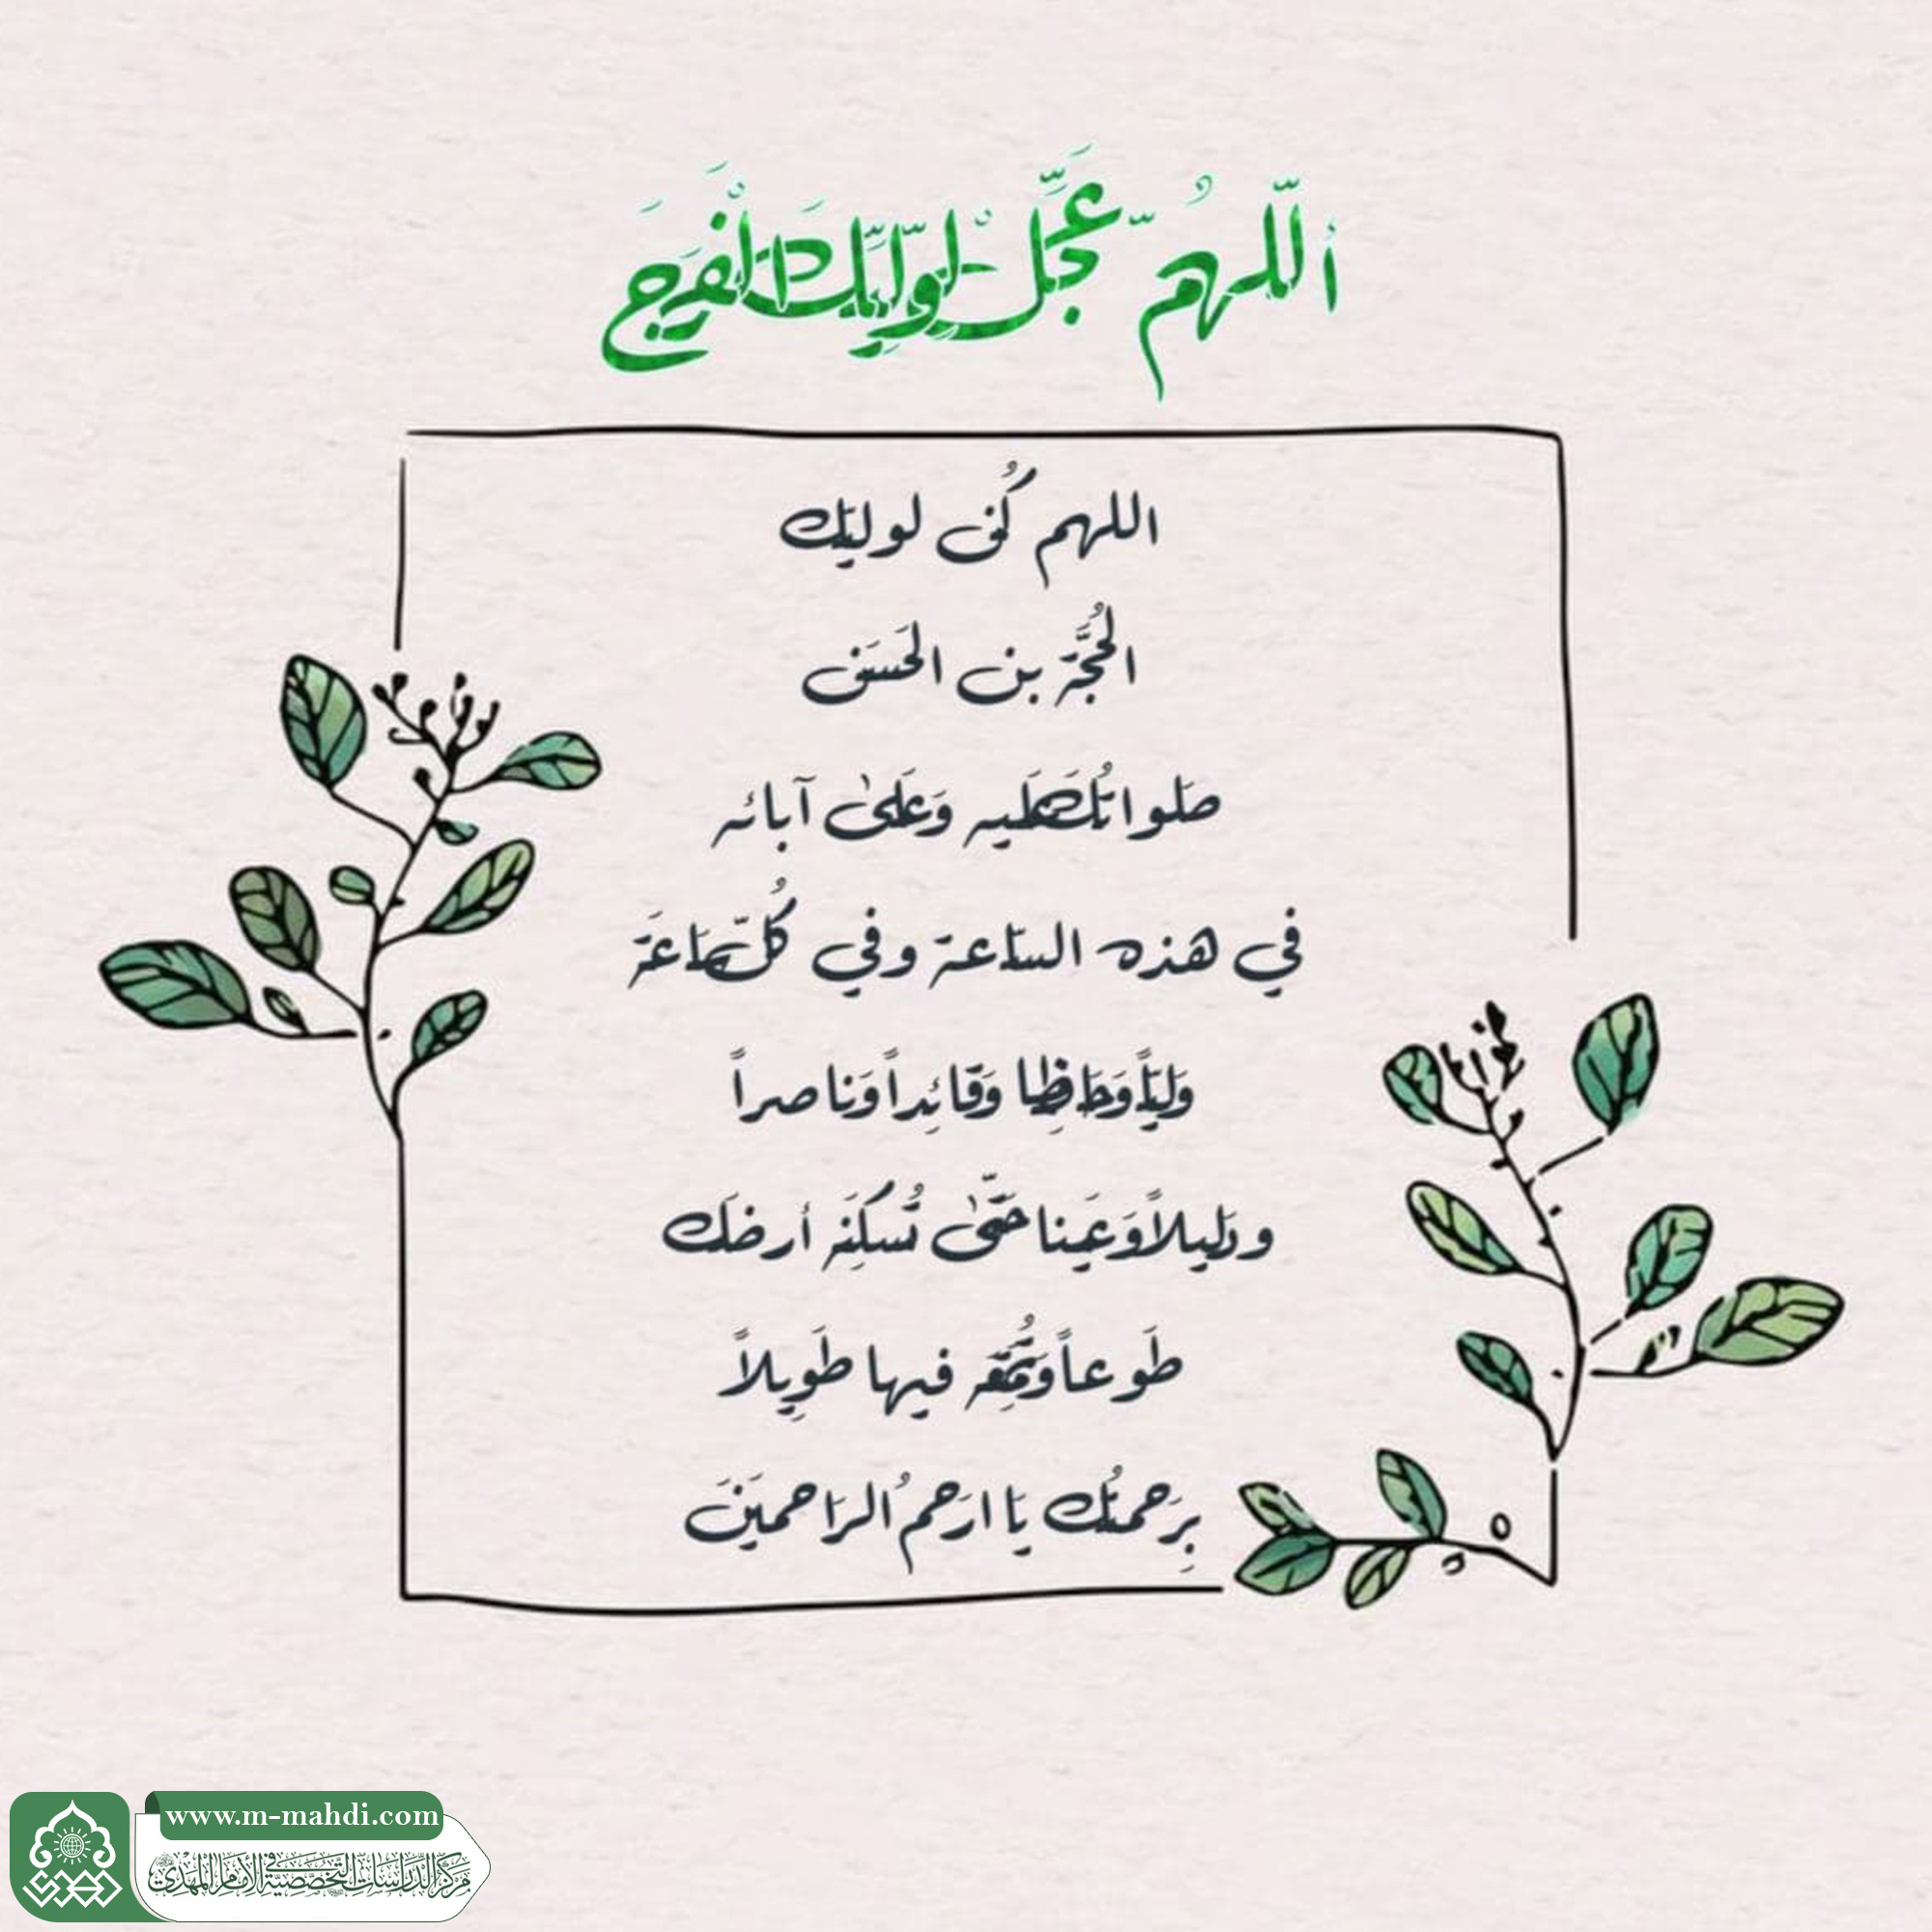 أَللّٰهُمَّ عَجِّلْ لِوَلِيِّكَ الْفَرَجَ
اللهم كُن لوليّك
الحُجَّة بن الحَسَن
صَلواتُكَ عَلَيه وَعَلىٰ آبائه
في هذه السّاعة وفي كُلّ سَاعَة
وَليّاً وَحَافِظا وَقائِداً وَناصراً
ودَليلاً وَعَينا حَتّىٰ تُسكِنَه أرضَك
طَوعاً وَتُمَتِّعَه فيها طَوِيلاً
بِرَحمتُك يَا ارَحمُ الرَاحمينَ
www.m-mahdi.com
مركز الدراسات التخصصية في الإمام المهدي